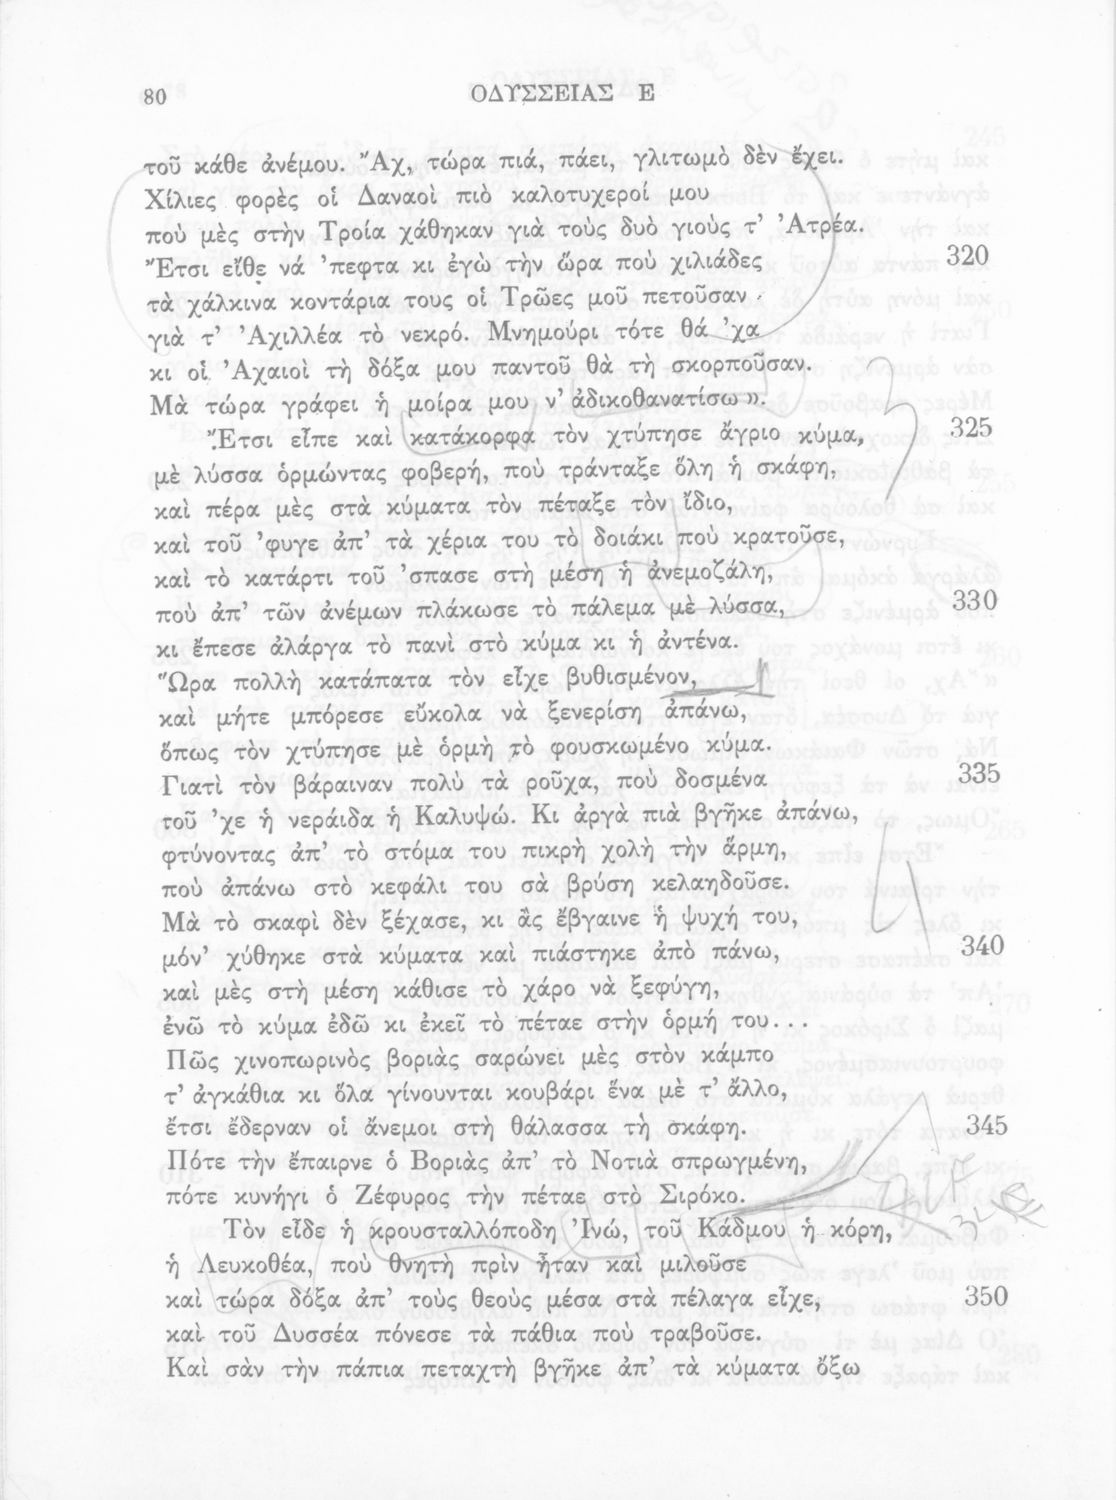 80
ΟΔΥΣΣΕΙΑΣ Ε
τοῦ κάθε ἀνέμου. Ἄχ, τώρα πιά, πάει, γλιτωμὸ δὲν ἔχει.
Χίλιες φορὲς οἱ Δαναοὶ πιὸ καλοτυχεροί μου
ποὺ μὲς στὴν Τροία χάθηκαν γιὰ τοὺς δυὸ γιοὺς τ' Ἀτρέα.
Ἔτσι εἴθε νά 'πεφτα κι ἐγὼ τὴν ὥρα ποὺ χιλιάδες
320
τὰ χάλκινα κοντάρια τους οἱ Τρῶες μοῦ πετοῦσαν
γιὰ τ' Ἀχιλλέα τὸ νεκρό. Μνημούρι τότε θά 'χα
κι οἱ Ἀχαιοὶ τὴ δόξα μου παντοῦ θὰ τὴ σκορποῦσαν.
Μὰ τώρα γράφει ἡ μοίρα μου ν' ἀδικοθανατίσω».
Ἔτσι εἶπε καὶ κατάκορφα τὸν χτύπησε ἄγριο κύμα,
325
μὲ λύσσα ὁρμώντας φοβερή, ποὺ τράνταξε ὅλη ἡ σκάφη,
καὶ πέρα μὲς στὰ κύματα τὸν πέταξε τὸν ἴδιο,
καὶ τοῦ 'φυγε ἀπ' τὰ χέρια του τὸ δοιάκι ποὺ κρατοῦσε,
καὶ τὸ κατάρτι τοῦ 'σπασε στὴ μέση ἡ ἀνεμοζάλη,
ποὺ ἀπ' τῶν ἀνέμων πλάκωσε τὸ πάλεμα μὲ λύσσα,
330
κι ἔπεσε ἀλάργα τὸ πανὶ στὸ κύμα κι ἡ ἀντένα.
Ὥρα πολλὴ κατάπατα τὸν εἶχε βυθισμένον,
καὶ μήτε μπόρεσε εὔκολα νὰ ξενερίση ἀπάνω,
ὅπως τὸν χτύπησε μὲ ὁρμὴ τὸ φουσκωμένο κύμα.
Γιατὶ τὸν βάραιναν πολὺ τὰ ροῦχα, ποὺ δοσμένα
335
τοῦ 'χε ἡ νεράιδα ἡ Καλυψώ. Κι ἀργὰ πιὰ βγῆκε ἀπάνω,
φτύνοντας ἀπ' τὸ στόμα του πικρὴ χολὴ τὴν ἅρμη,
ποὺ ἀπάνω στὸ κεφάλι του σὰ βρύση κελαηδοῦσε.
Μὰ τὸ σκαφὶ δὲν ξέχασε, κι ἂς ἔβγαινε ἡ ψυχή του,
μόν' χύθηκε στὰ κύματα καὶ πιάστηκε ἀπὸ πάνω,
340
καὶ μὲς στὴ μέση κάθισε τὸ χάρο νὰ ξεφύγη,
ἐνῶ τὸ κύμα ἐδῶ κι ἐκεῖ τὸ πέταε στὴν ὁρμή του...
Πῶς χινοπωρινὸς βοριὰς σαρώνει μὲς στὸν κάμπο
τ' ἀγκάθια κι ὅλα γίνουνται κουβάρι ἕνα μὲ τ' ἄλλο,
ἔτσι ἔδερναν οἱ ἄνεμοι στὴ θάλασσα τὴ σκάφη.
345
Πότε τὴν ἔπαιρνε ὁ Βοριὰς ἀπ' τὸ Νοτιὰ σπρωγμένη,
πότε κυνήγι ὁ Ζέφυρος τὴν πέταε στὸ Σιρόκο.
Τὸν εἶδε ἡ κρουσταλλόποδη Ἰνώ, τοῦ Κάδμου ἡ κόρη,
ἡ Λευκοθέα, ποὺ θνητὴ πρὶν ἦταν καὶ μιλοῦσε
καὶ τώρα δόξα ἀπ' τοὺς θεοὺς μέσα στὰ πέλαγα εἶχε,
350
καὶ τοῦ Δυσσέα πόνεσε τὰ πάθια ποὺ τραβοῦσε.
Καὶ σὰν τὴν πάπια πεταχτὴ βγῆκε ἀπ' τὰ κύματα ὄξω